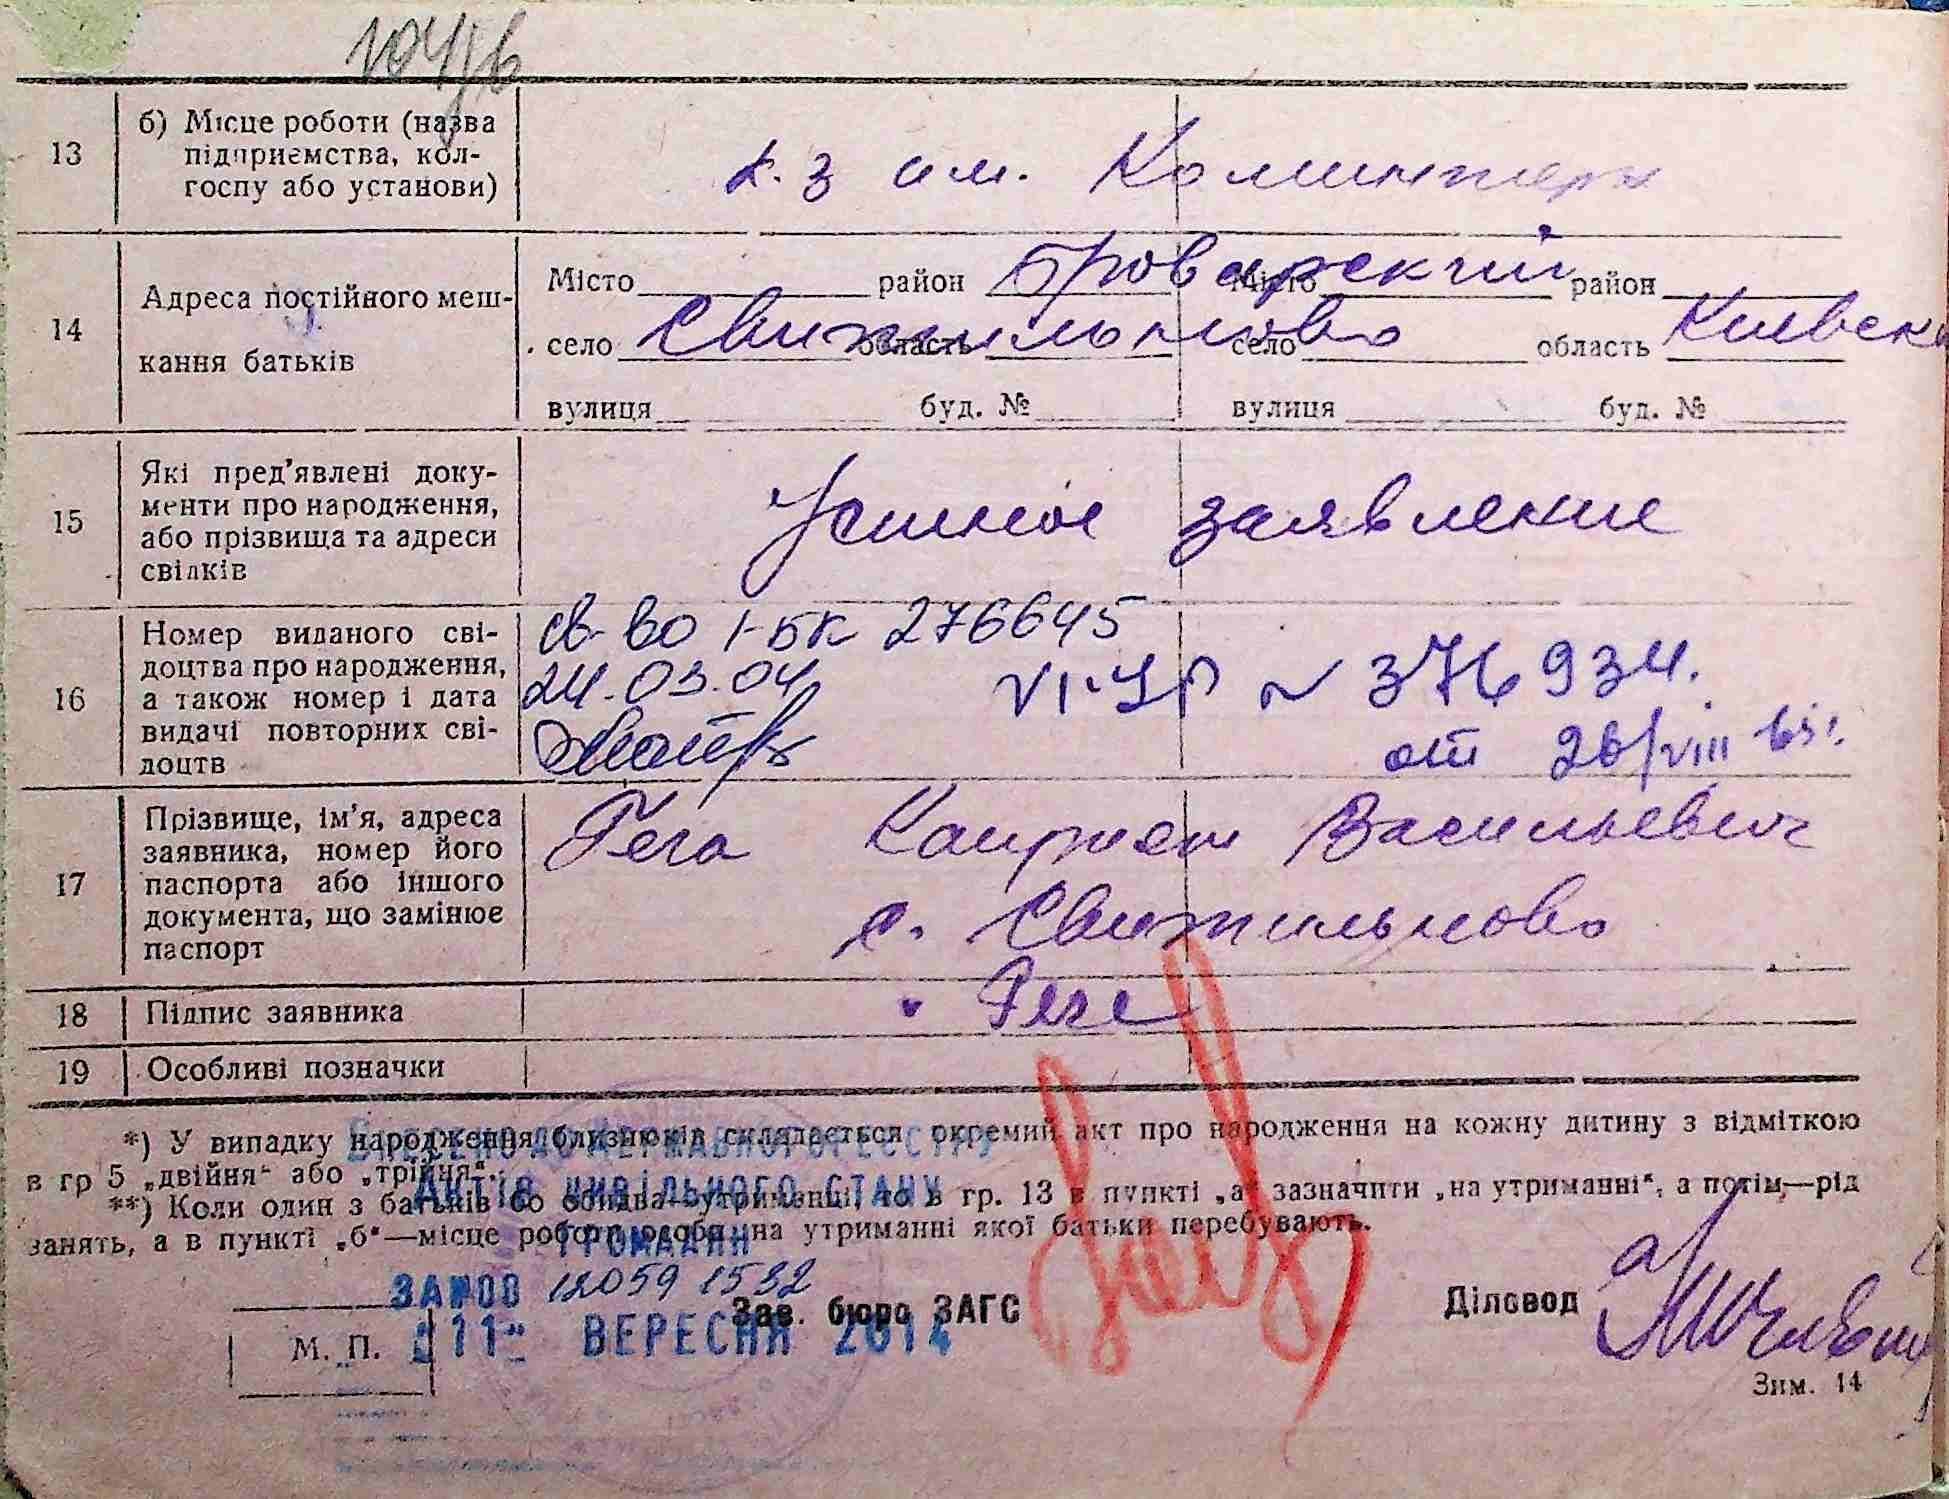 13
б) Місце роботи (назва
підприємства, кол-
госпу або установи)
к. з им. Коминтерн
14
Адреса постійного меш-
кання батьків
Місто район Броварский Місто район
село Свитильново область село область Киевска
вулиця буд. № вулиця буд. №
15
Які пред'явлені доку-
менти про народження,
або прізвища та адреси
свідків
Устное заявление
16
Номер виданого сві-
доцтва про народження,
а також номер і дата
видачі повторних сві-
доцтв
св-во 1-БК 276645
24.03.04
№ 376934.
от 26/VIII 65г.
17
Прізвище, ім'я, адреса
заявника, номер його
паспорта або іншого
документа, що замінює
паспорт
Гега Киприян Васильевич
с. Свитильново
18
Підпис заявника
19
Особливі позначки
*) У випадку народження близнюків складається окремий акт про народження на кожну дитину з відміткою
в гр 5 „двійня" або „трійня".
**) Коли один з батьків бо обидва—утриманці, то в гр. 13 в пункті „а" зазначити „на утриманні", а потім—рід
занять, а в пункті „б"—місце роботи особи, на утриманні якої батьки перебувають.
ВНЕСЕНО ДО ДЕРЖАВНОГО РЕЄСТРУ
АКТІВ ЦИВІЛЬНОГО СТАНУ
ГРОМАДЯН
ЗА №00 12059 1532
„11" ВЕРЕСНЯ 2014
М. П.
Зав. бюро ЗАГС
Діловод
Зим. 14